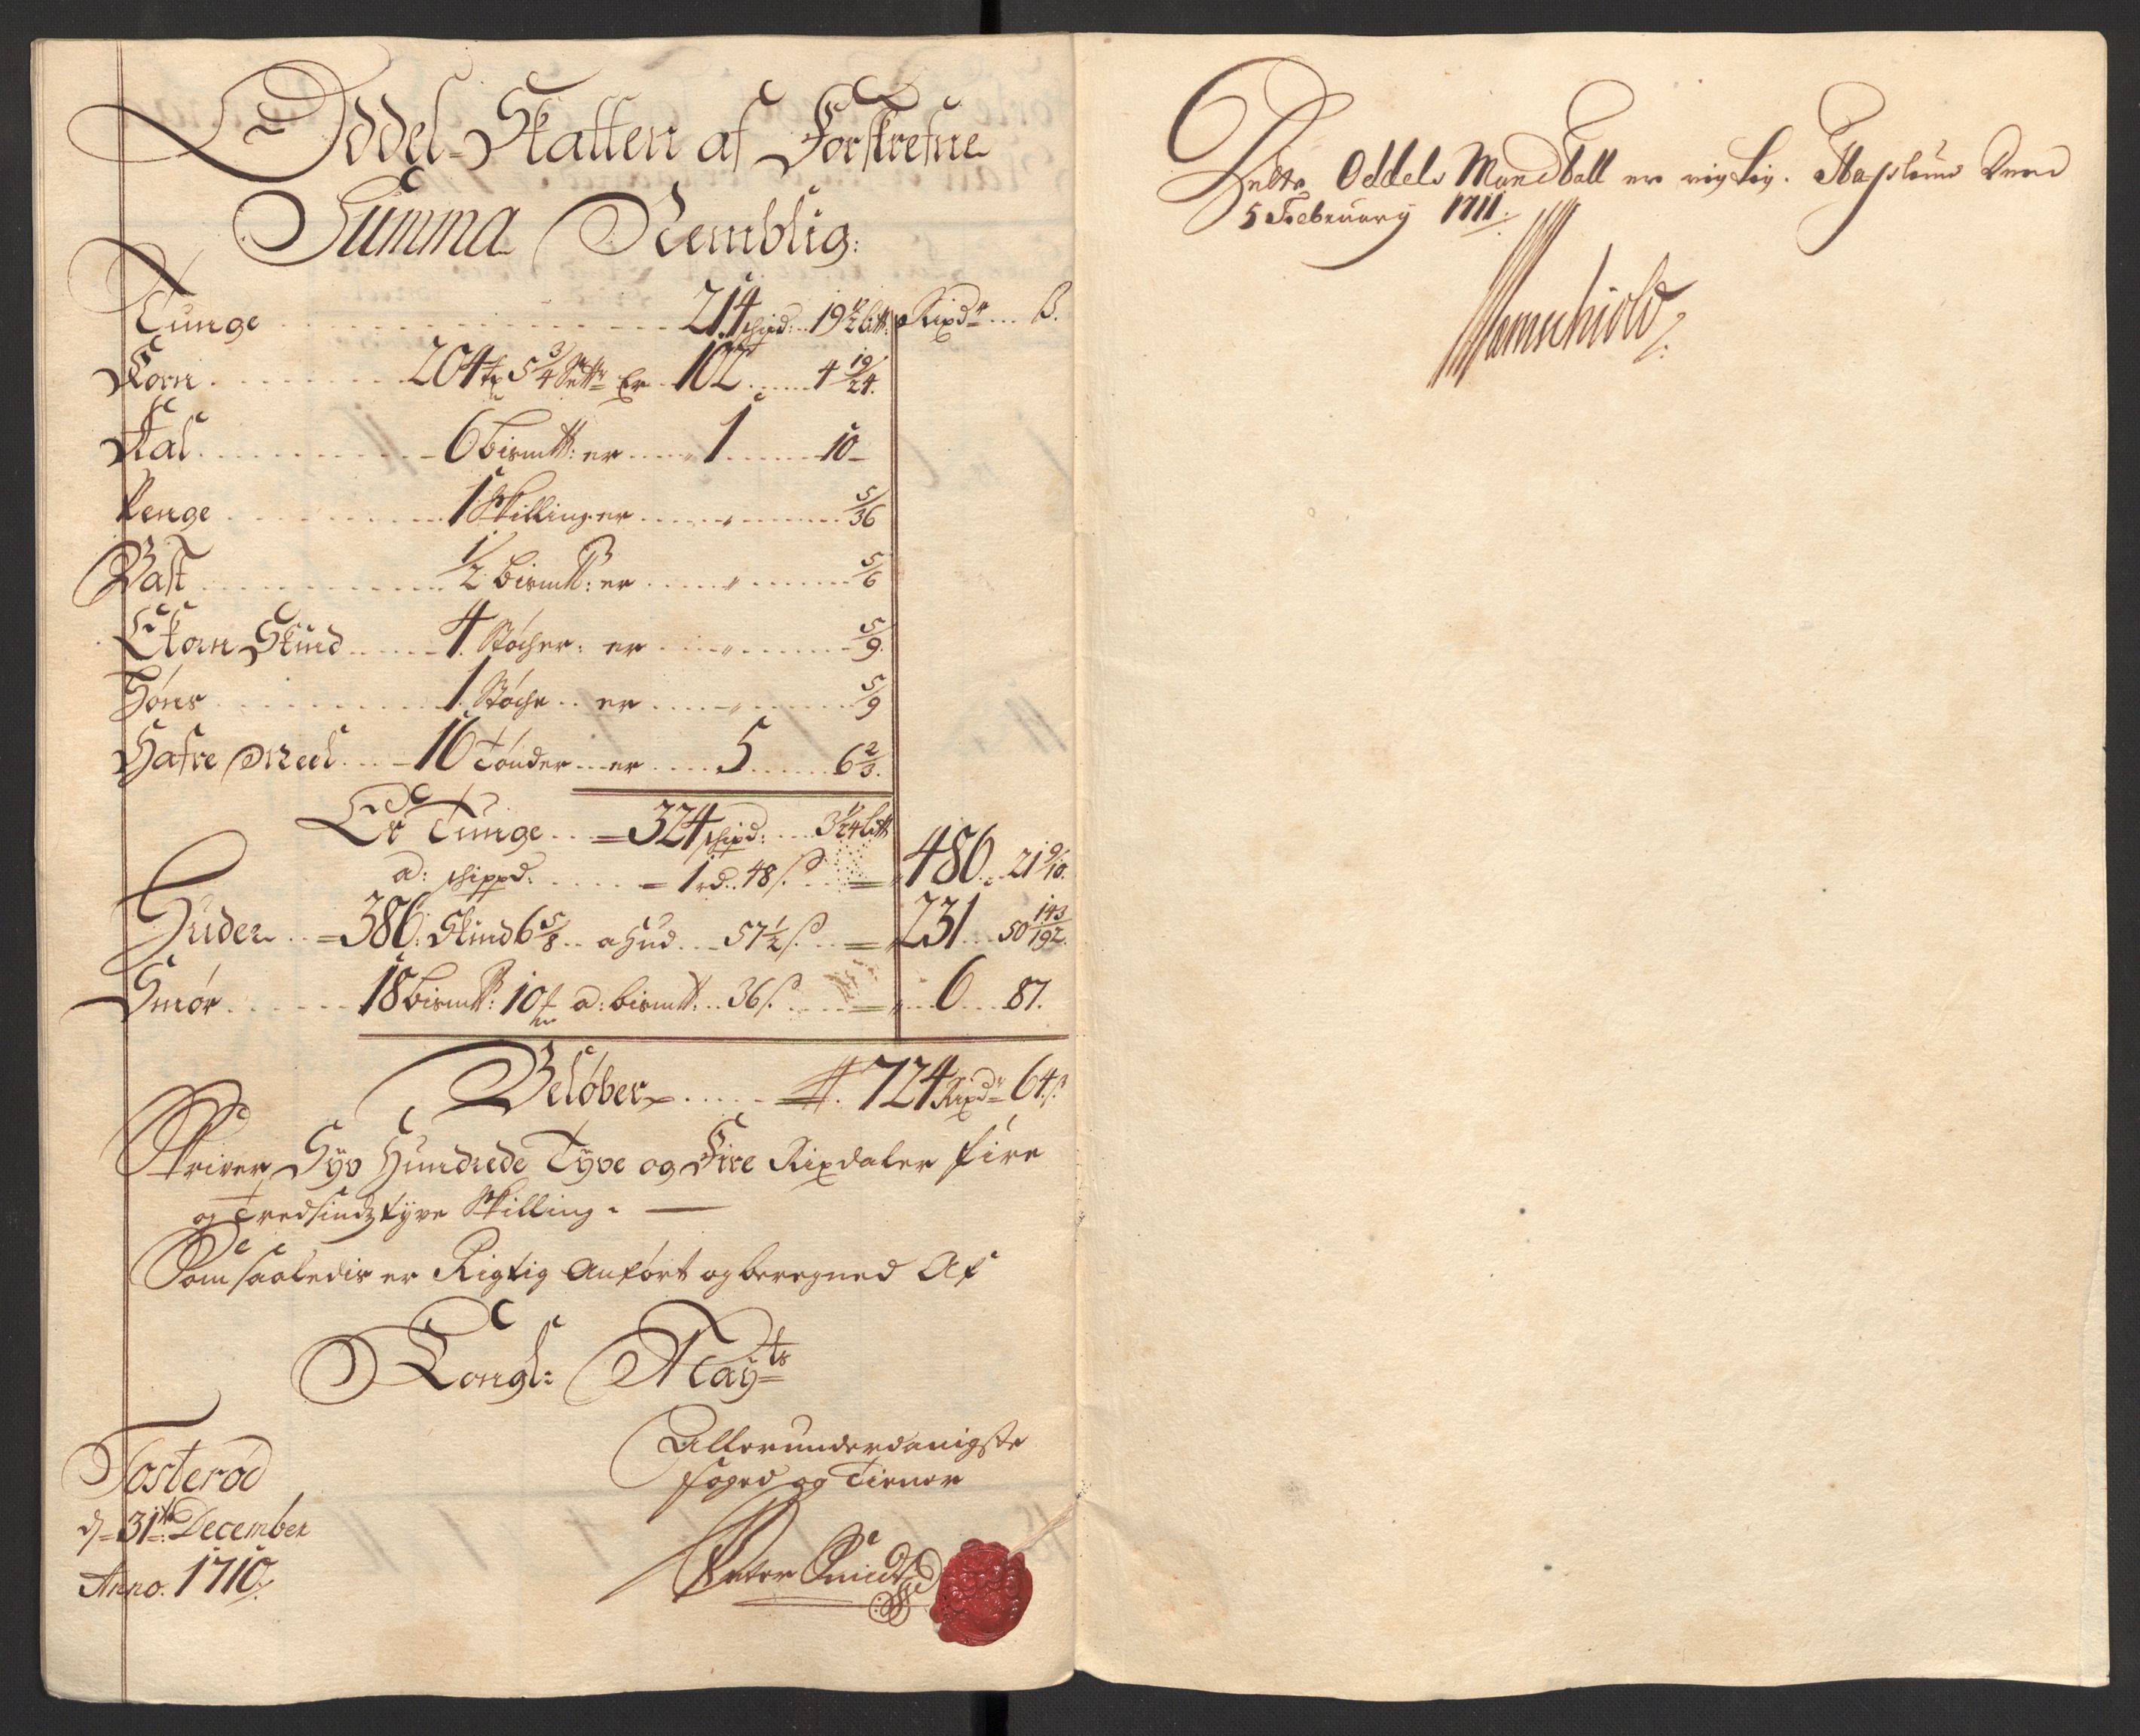 Oddel-Skatten af Forskrefne
Summa Nemblig:
Tunge 214 schpd: 19 1/2 litt: Rixdr ß.
Korn 204 tr 5 3/4 Settr Er 102 4 19/24.
Kal 6 bismtt: er 1 10
Penge 1 Skilling er 5/36
Bast 1/2 bismtt: er 5/6
Ekorn Skind 4 Støcher: er 5/9.
Høns 1 Støche er 5/9
Hafre Meel 16 Tønder er 5 6 2/3.
Er Tunge 324 schpd: 3 1/24 litt
a: schippd. 1 rd. 48 ß. 486. 21 9/10.
Huder 386. Skind 6 5/8 a Hud 57 1/2 ß. 231 50 143/192.
Smør 18 bismtt: 10 a: bismtt. 36 ß. 6 87.
Beløber 724 Rixdr 64 ß
Skriver Syv Hundrede Tyve og Fire Rixdaler fire
og Tredsindztyve Skilling.
Som saaledis er Rigtig Anført og beregned Af
Kongl: Mayts
Allerunderdanigste
foged og Tiener
Tosterød
d. 31te December
Anno. 1710.
Peter Smidt
Dette Oddels Mandtall er rigtig. Den
5 February 1711.